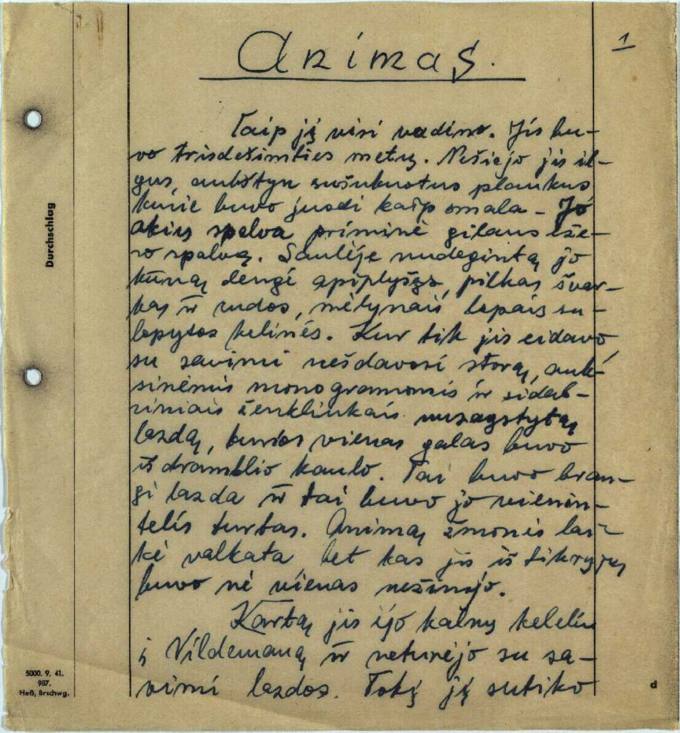 1
Animas.
Taip jį visi vadino. Jis bu-
vo trisdešimties metų. Nešiojo jis il-
gus, aukštyn sušukuotus plaukus
kurie buvo juodi kaip smala – Jo
akių spalva priminė gilaus eže-
ro spalvą. Saulėje nudegintą jo
kūną dengė apiplyšęs, pilkas švar-
kas ir rudos, mėlynais lopais su-
lopytos kelinės. Kur tik jis eidavo,
su savimi nešdavosi storą, auk-
sinėmis monogramomis ir sidab-
riniais ženkliukais nusagstytą
lazdą, kurios vienas galas buvo
iš dramblio kaulo. Tai buvo bran-
gi lazda ir tai buvo jo vienin-
telis turtas. Animą žmonės lai-
kė valkata, bet kas jis iš tikrųjų
buvo nė vienas nežinojo.
Kartą jis ėjo kalnų keleliu
į Vildemaną ir neturėjo su sa-
vimi lazdos. Tokį jį sutiko
Durchschlag
5000. 9. 41.
987.
Heß, Brschwg.
d